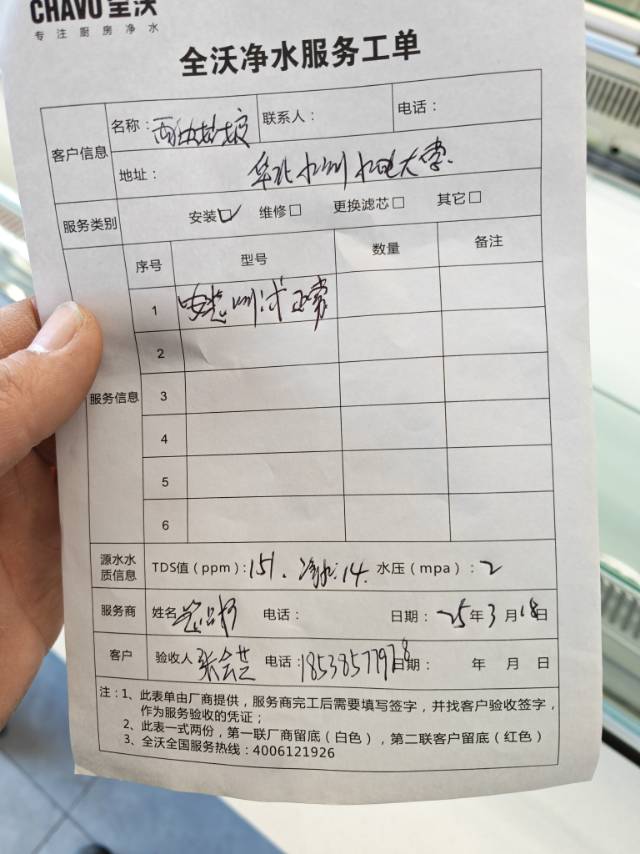 CHAVO 全沃
专注厨房净水
全沃净水服务工单
客户信息
名称：
联系人：
电话：
地址： 华北水利水电大学.
服务类别
安装☑ 维修□ 更换滤芯□ 其它□
服务信息
序号 型号 数量 备注
1 安装调试正常
2
3
4
5
6
源水水质信息
TDS值（ppm）：151. 净水：14. 水压（mpa）：2
服务商 姓名 电话： 日期：25年3月18日
客户 验收人 张会芸 电话：18538577978 日期： 年 月 日
注：1、此表单由厂商提供，服务商完工后需要填写签字，并找客户验收签字，
作为服务验收的凭证；
2、此表一式两份，第一联厂商留底（白色），第二联客户留底（红色）
3、全沃全国服务热线：4006121926